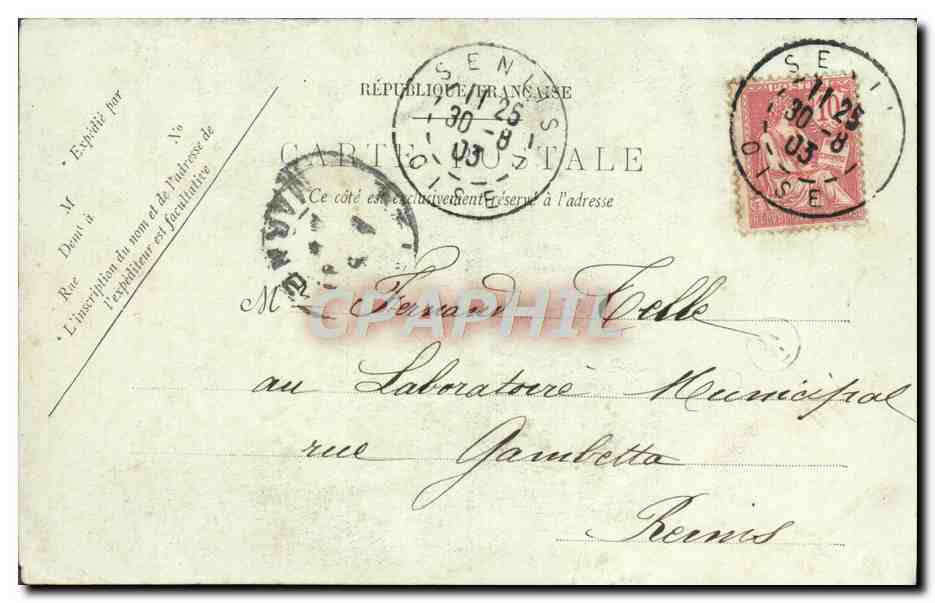 RÉPUBLIQUE FRANÇAISE
CARTE POSTALE
Ce côté est exclusivement réservé à l'adresse
Expédié par
M No
Demt à
Rue
L'inscription du nom et de l'adresse de
l'expéditeur est facultative
SENLIS
11 25
30 -8
03
OISE
SE
11 25
30 -8
03
OISE
10
M Fernand Telle
au Laboratoire Municipal
rue Gambetta
Reims
CPAPHIL